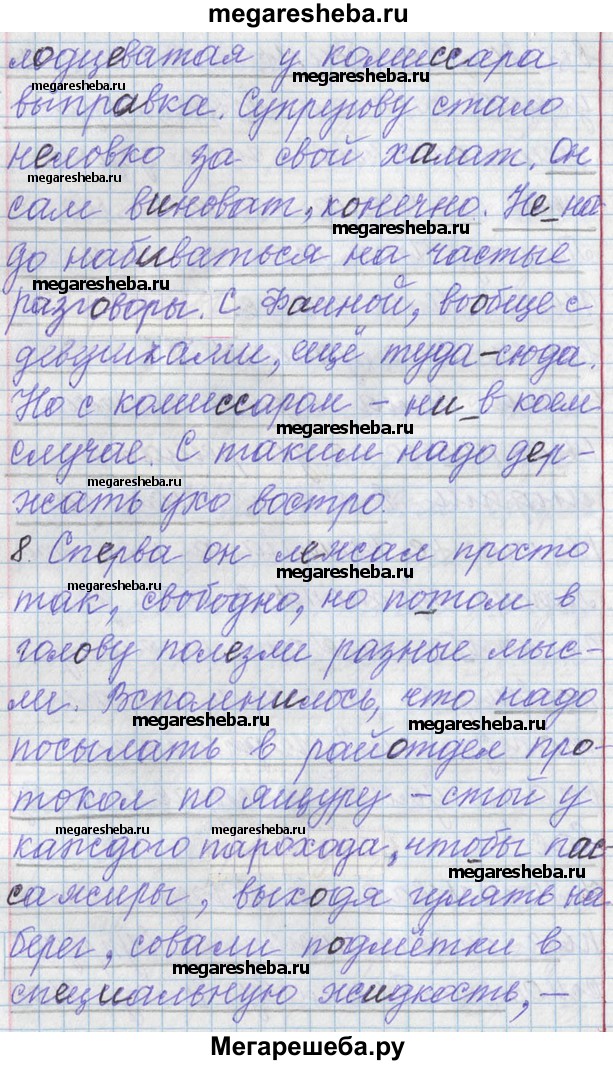 megaresheba.ru
лодцеватая у комиссара
megaresheba.ru
megaresheba.ru
выправка. Супругову стало
неловко за свой халат. Он
megaresheba.ru
сам виноват, конечно. Не на-
megaresheba.ru
до набиваться на частые
megaresheba.ru
разговоры. С Фаиной, вообще с
девушками, ещё туда-сюда.
Но с комиссаром – ни в коем
megaresheba.ru
случае. С таким надо дер-
megaresheba.ru
жать ухо востро.
8. Сперва он лежал просто
megaresheba.ru
megaresheba.ru
так, свободно, но потом в
голову полезли разные мыс-
ли. Вспомнилось, что надо
megaresheba.ru
megaresheba.ru
посылать в райотдел про-
токол по ящуру – стой у
megaresheba.ru
megaresheba.ru
каждого парохода, чтобы пас-
megaresheba.ru
сажиры, выходя гулять на
берег, совали подмётки в
megaresheba.ru
специальную жидкость, –
Мегарешеба.ру